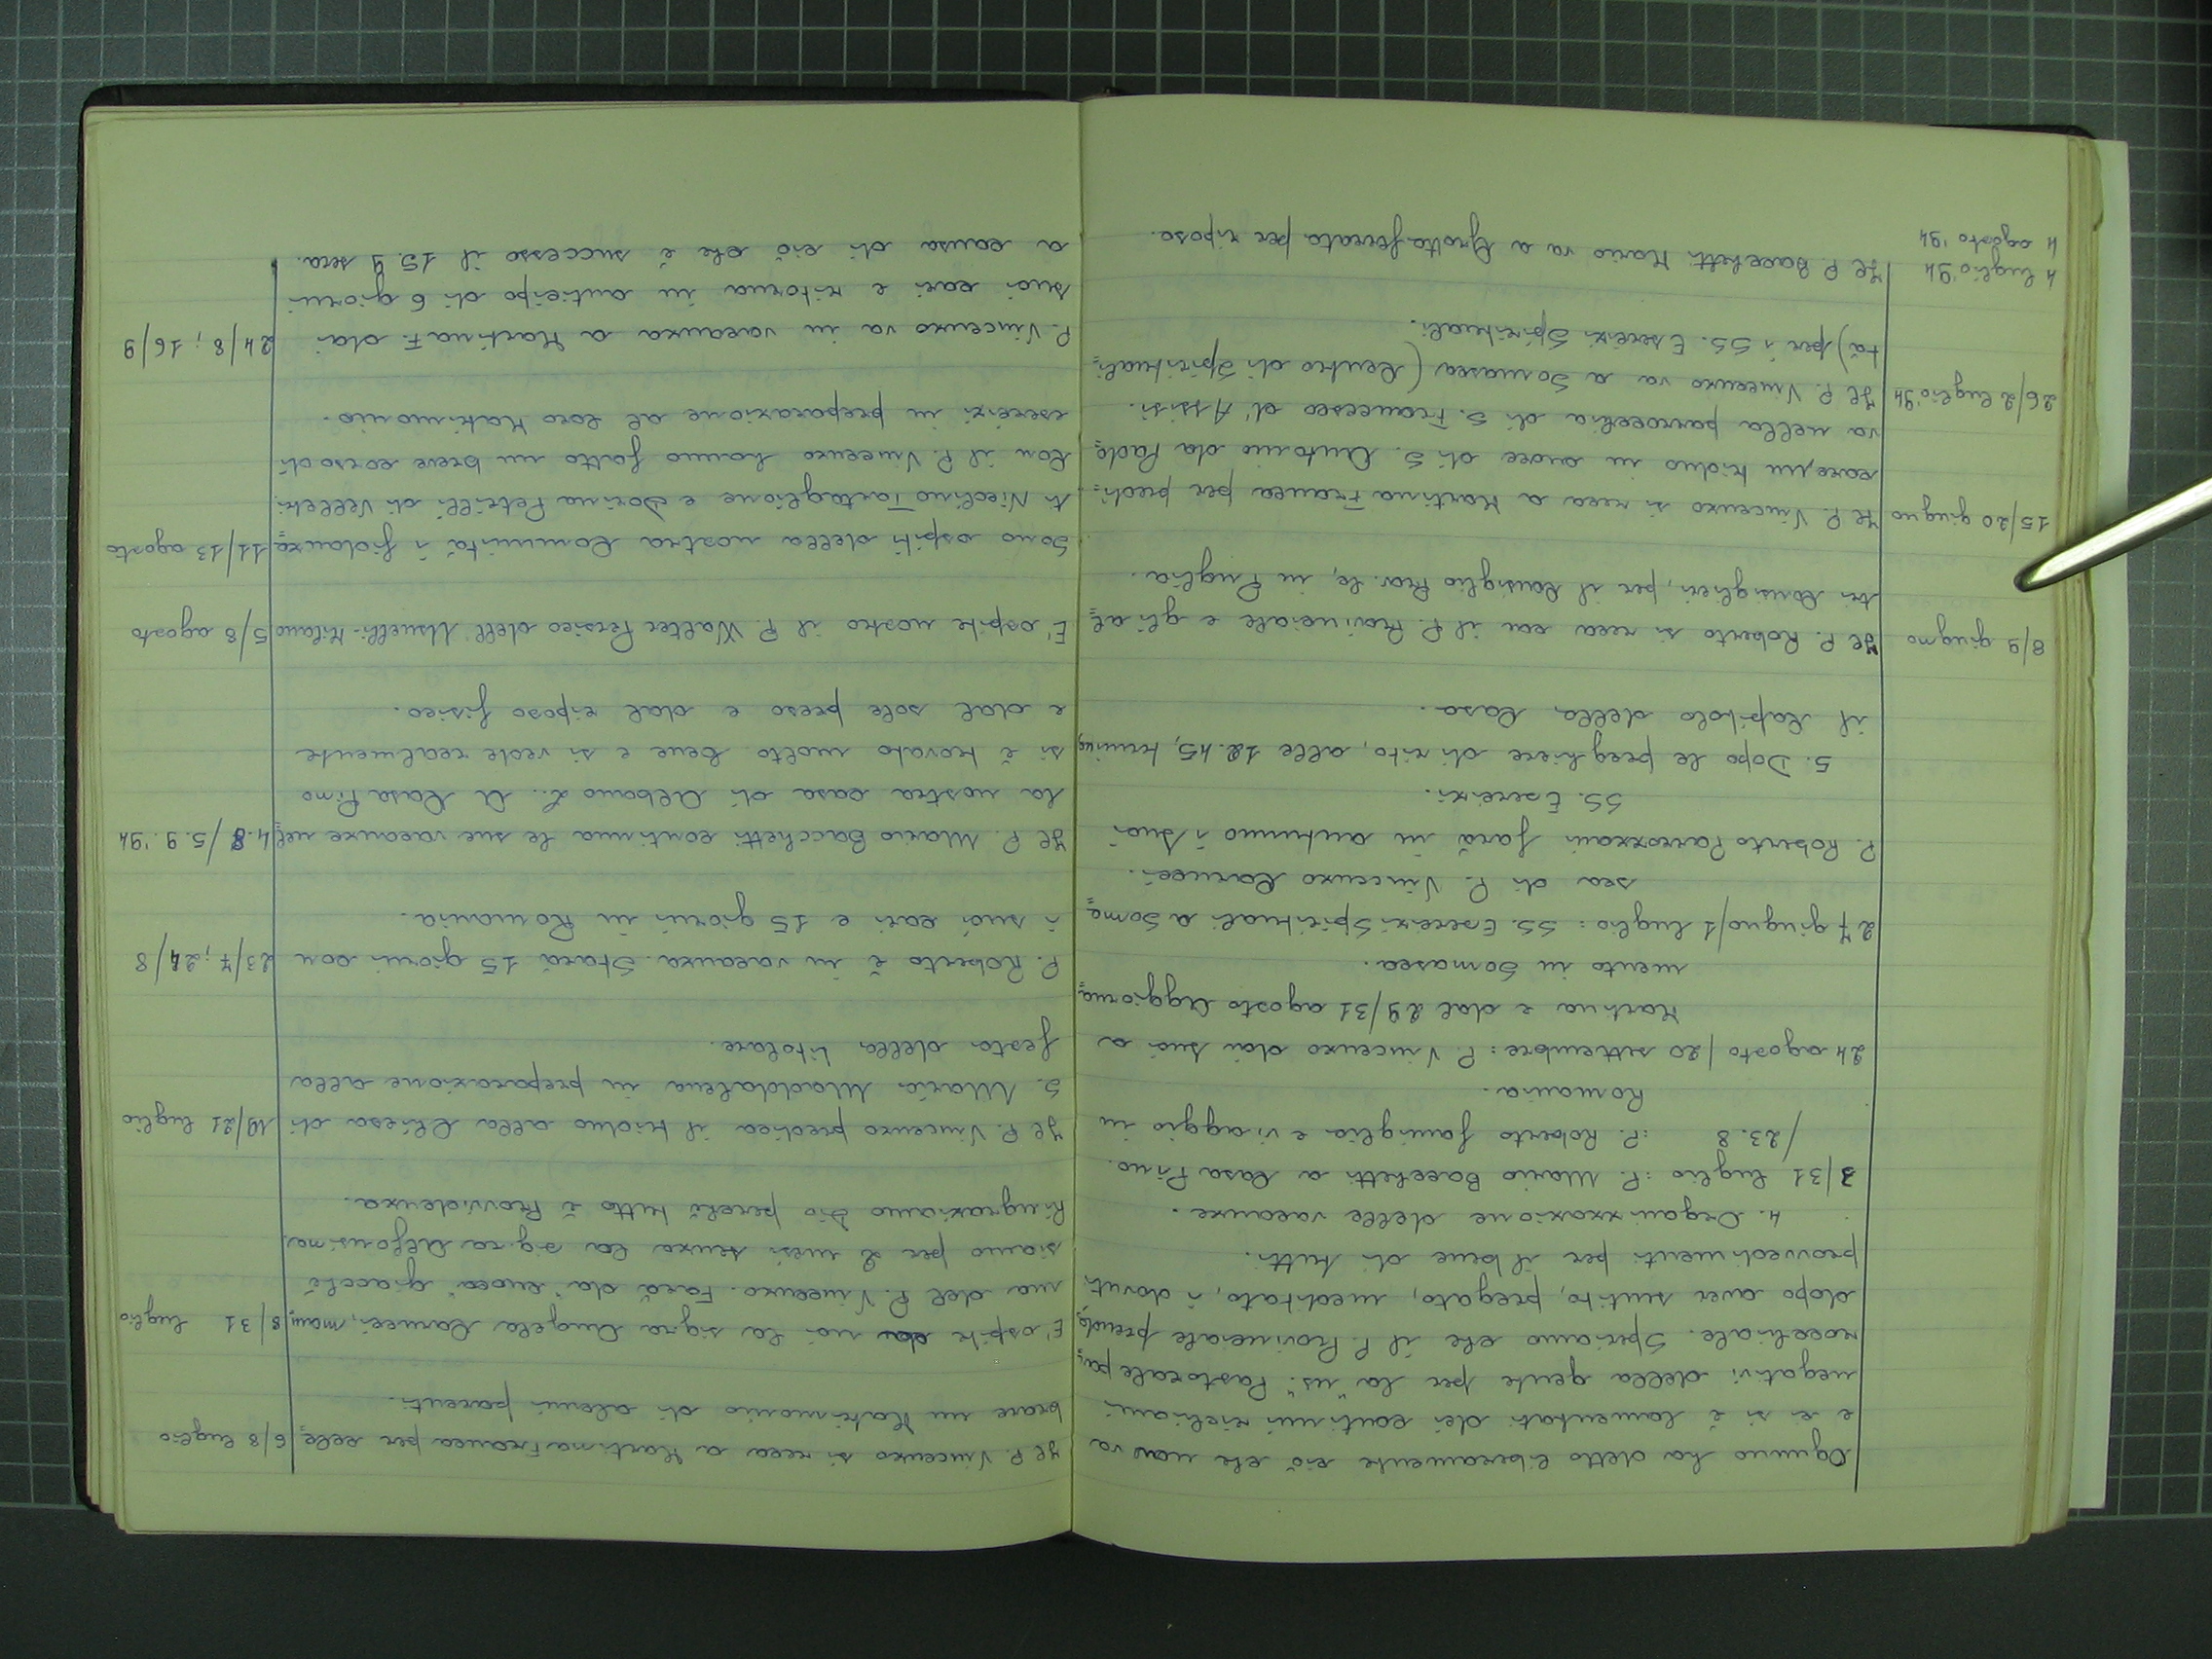 Ognuno ha detto liberamente ciò che non va
e ci si è lamentati dei continui richiami
negativi della gente per la "ns". Pastorale par=
rocchiale. Speriamo che il P. Provinciale prenda,
dopo aver sentito, pregato, meditato, i dovuti
provvedimenti per il bene di tutti.
4. Organizzazione delle vacanze.
3/31 luglio: P. Mario Bacchetti a Casa Pino.
/23.8 : P. Roberto famiglia e viaggio in
Romania.
24 agosto / 20 settembre: P. Vincenzo dai suoi a
Martina e dal 29/31 agosto Aggiorna=
mento in Somasca.
27 giugno/1 luglio: SS. Esercizi Spirituali a Soma=
sca di P. Vincenzo Carucci.
P. Roberto Parrozzani farà in autunno i suoi
SS. Esercizi.
5. Dopo le preghiere di rito, alle 12.45, termina
il Capitolo della Casa.
8/9 giugno Il P. Roberto si reca con il P. Provinciale e gli al=
tri Consiglieri, per il Consiglio Prov.le, in Puglia.
15/20 giugno Il P. Vincenzo si reca a Martina Franca per predi=
care un triduo in onore di S. Antonio da Pado=
va nella parrocchia di S. Francesco d'Assisi.
26/2 luglio '94 Il P. Vincenzo va a Somasca (Centro di Spirituali=
tà) per i SS. Esercizi Spirituali.
4 luglio '94 Il P. Bacchetti Mario va a Grottaferrata per riposo.
4 agosto '94
Il P. Vincenzo si reca a Martina Franca per cele= 6/8 luglio
brare un Matrimonio di alcuni parenti.
E' ospite da noi la sig.ra Angela Carucci, mam= 8/31 luglio
ma del P. Vincenzo. Farà da "cuoca" giacché
siamo per 2 mesi senza la sig.ra Alfonsina.
Ringraziamo Dio perché tutto è Provvidenza.
Il P. Vincenzo predica il triduo alla Chiesa di 19/21 luglio
S. Maria Maddalena in preparazione alla
festa della titolare.
P. Roberto è in vacanza. Starà 15 giorni con 23/7; 24/8
i suoi cari e 15 giorni in Romania.
Il P. Mario Bacchetti continua le sue vacanze nel= 4.8/5.9.'94
la nostra casa di Albano L. A Casa Pino
si è trovato molto bene e si vede realmente
e dal sole preso e dal riposo fisico.
E' ospite nostro il P. Walter Persico dell'Usuelli-Milano 5/8 agosto
Sono ospiti della nostra Comunità i fidanza= 11/13 agosto
ti Nicolino Tartaglione e Dorina Petrilli di Velletri.
Con il P. Vincenzo hanno fatto un breve corso di
esercizi in preparazione al loro Matrimonio.
P. Vincenzo va in vacanza a Martina F. dai 24/8; 16/9
suoi cari e ritorna in anticipo di 6 giorni
a causa di ciò che è successo il 15.9 sera.